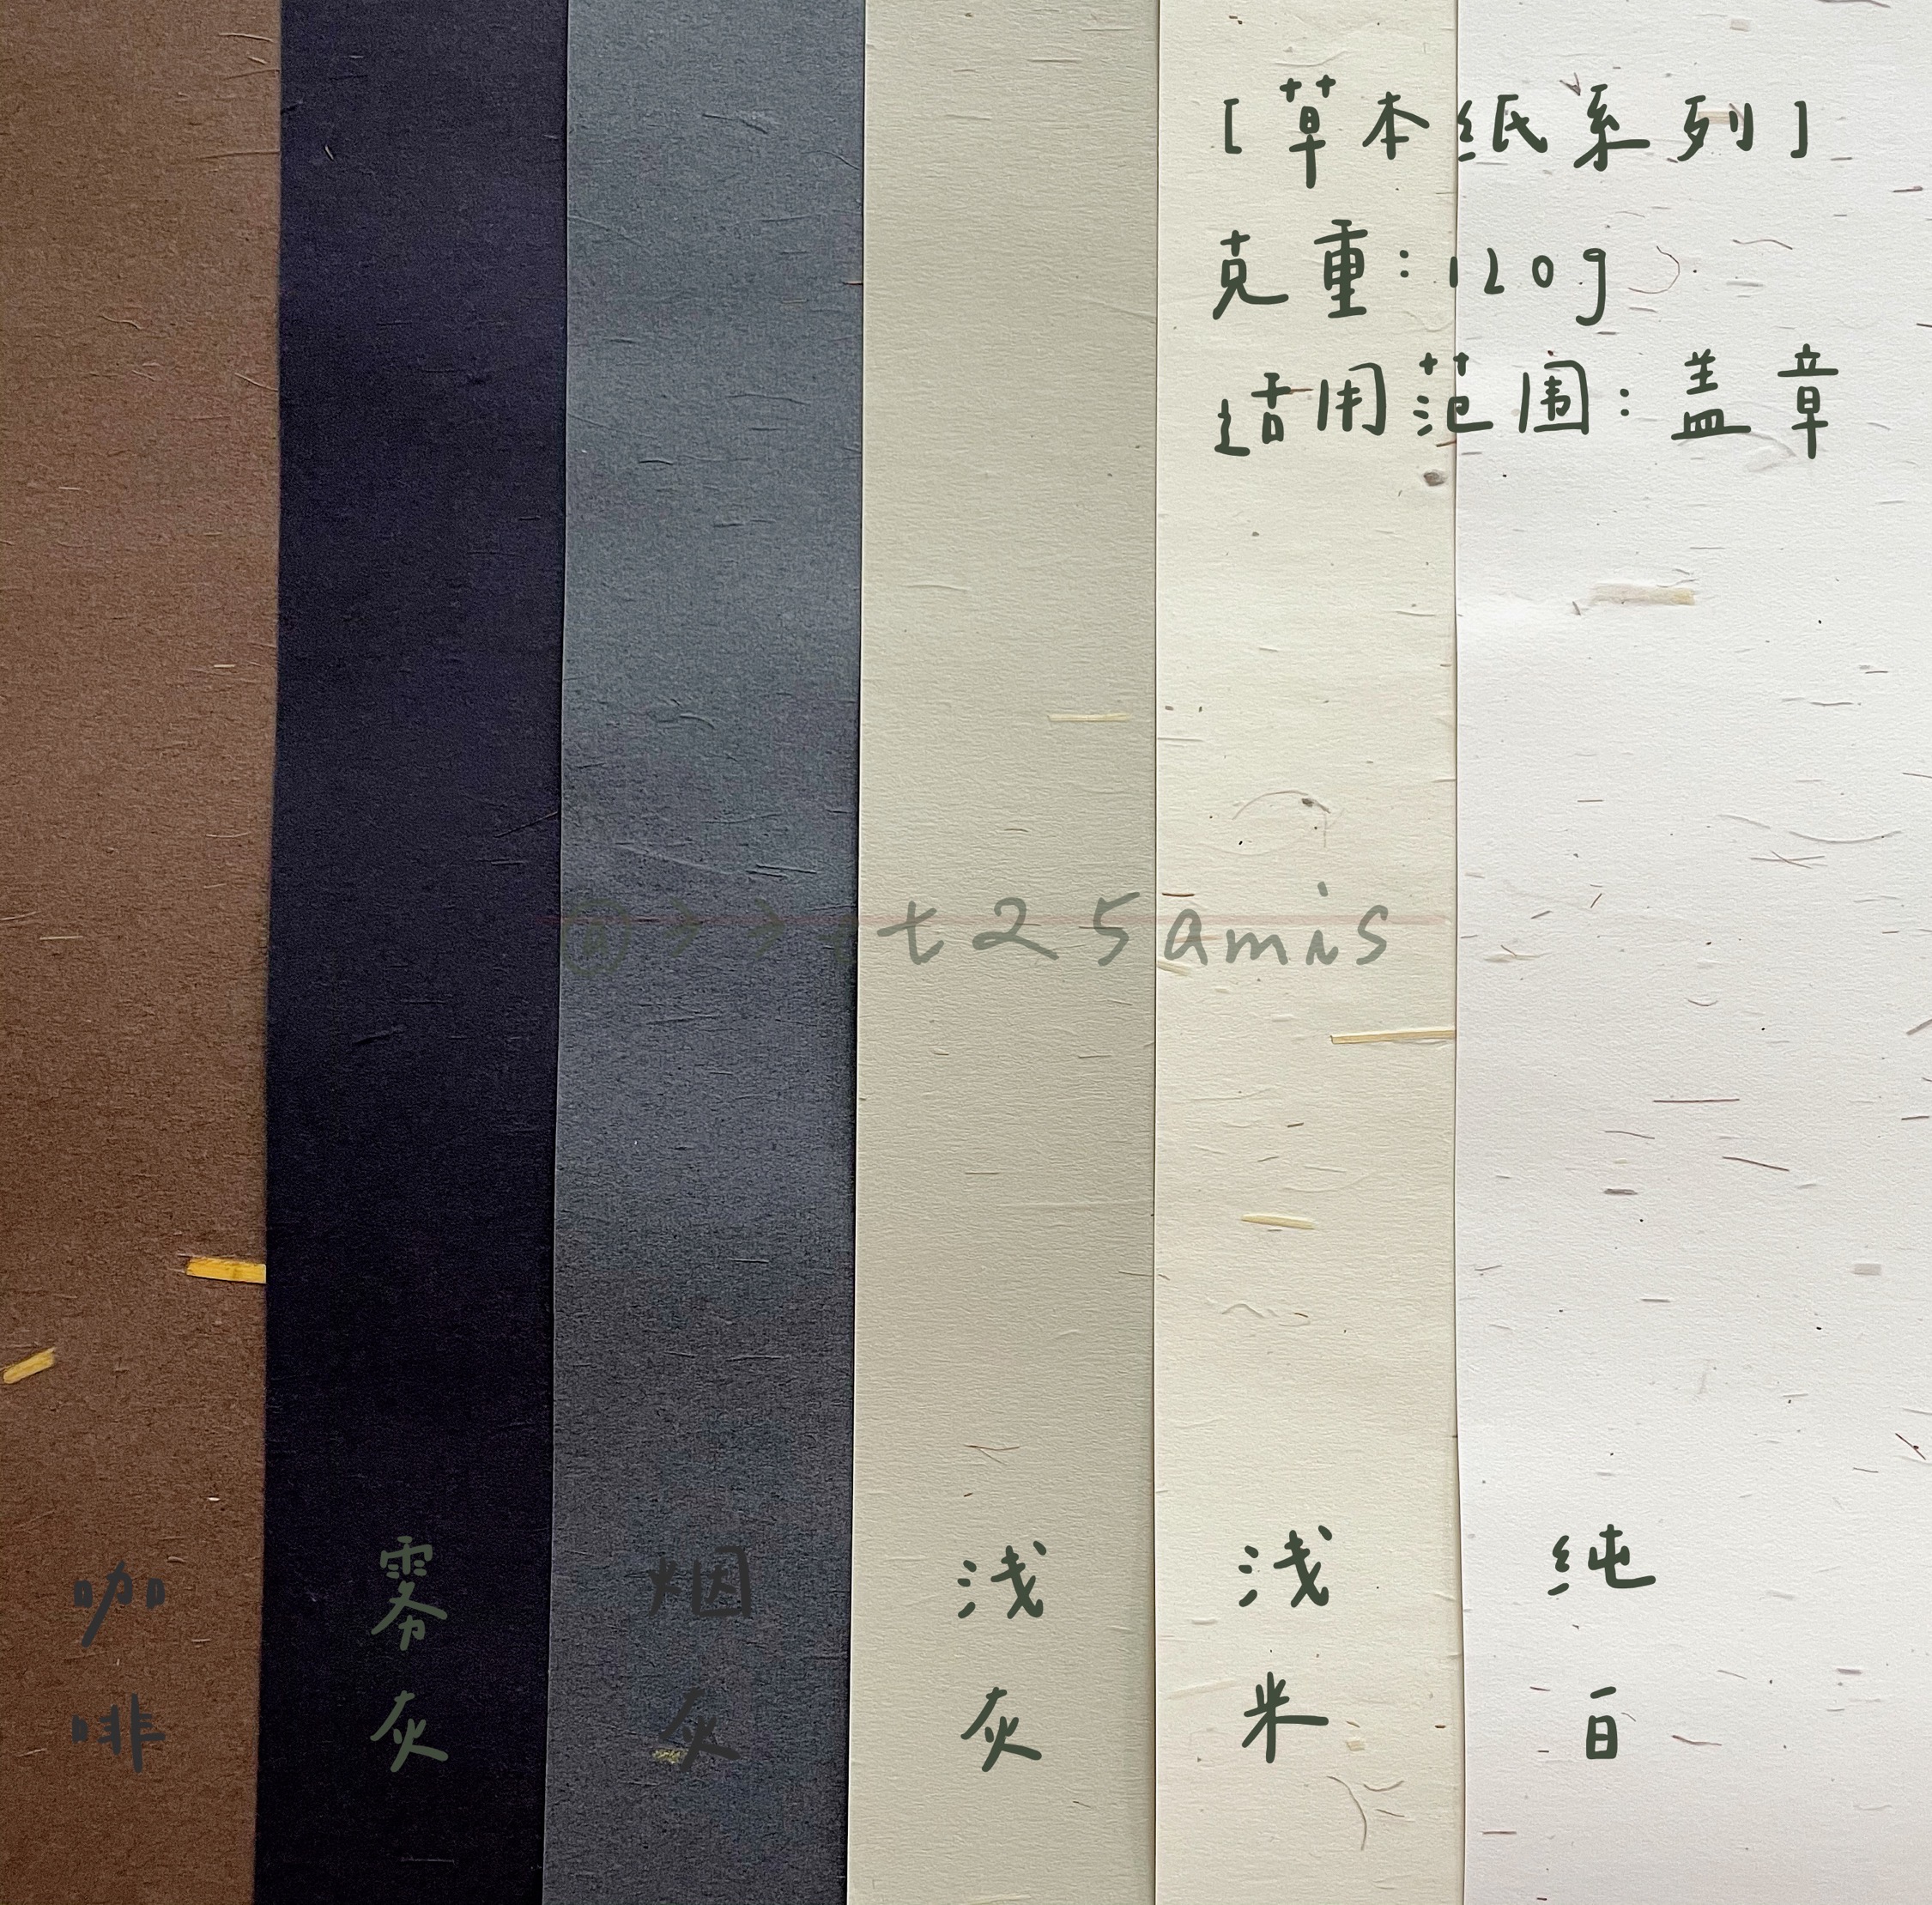 [草本纸系列]
克重:120g
适用范围:盖章
t25amis
咖啡
雾灰
烟灰
浅灰
浅米
纯白